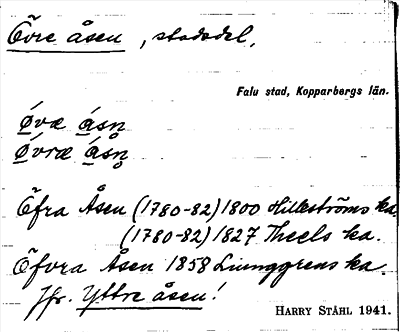 Övre åsen, stadsdel.
Falu stad, Kopparbergs län.
Óvæ ásn̥
Óvræ ásn̥
Öfra Åsen (1780-82) 1800 Hilleströms ka.
(1780-82) 1827 Theels ka.
Öfvra Åsen 1858 Ljunggrens ka.
Jfr. Yttre åsen!
HARRY STÅHL 1941.